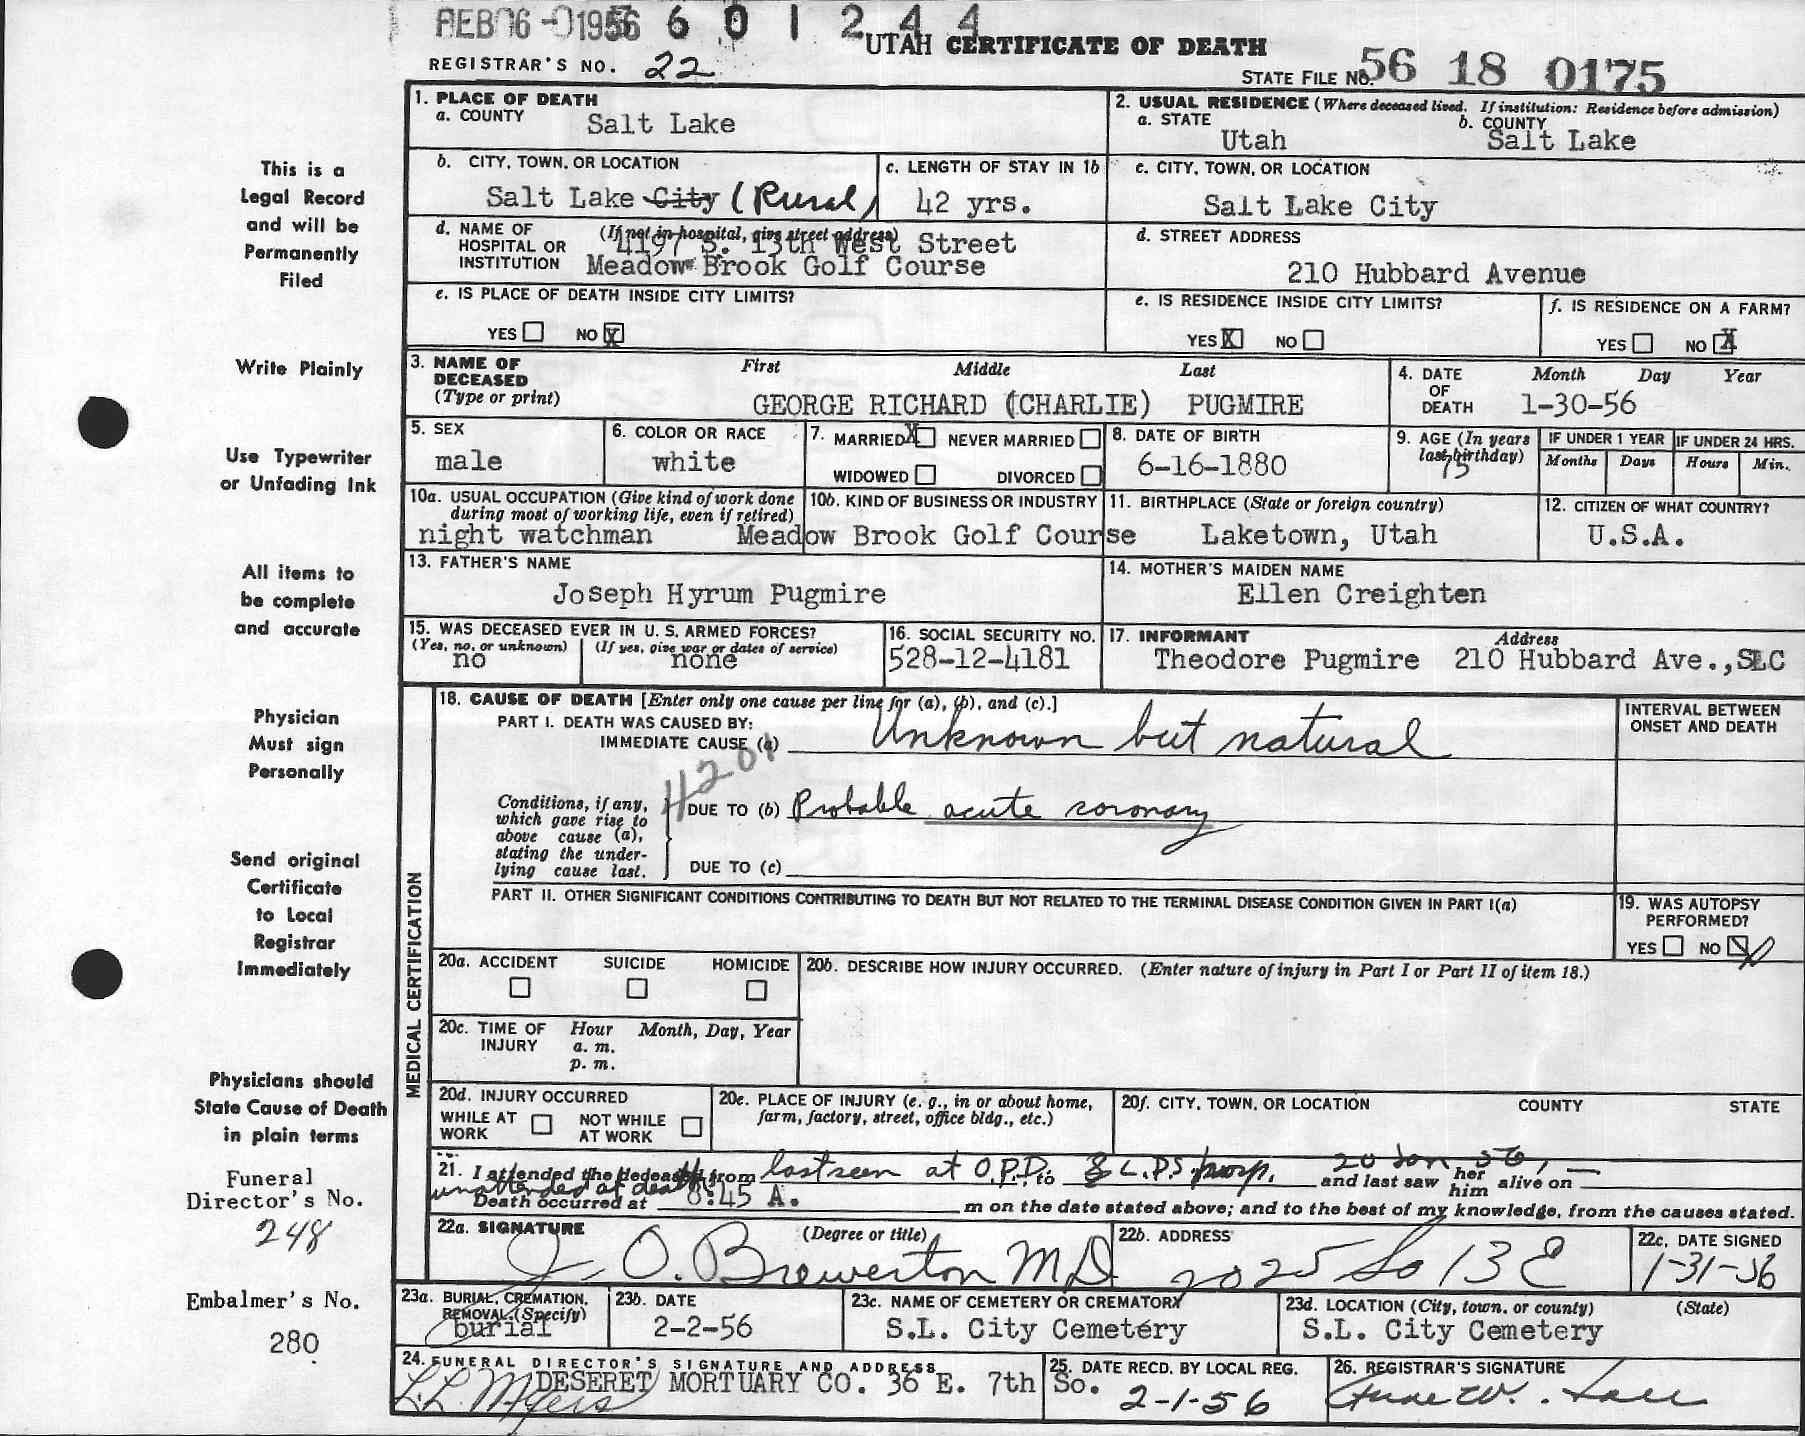 FEB 06 1956 5 6 0 1 2 4 4
UTAH CERTIFICATE OF DEATH
REGISTRAR'S NO. 22
STATE FILE NO. 56 18 0175
1. PLACE OF DEATH
a. COUNTY Salt Lake
2. USUAL RESIDENCE (Where deceased lived. If institution: Residence before admission)
a. STATE Utah b. COUNTY Salt Lake
b. CITY, TOWN, OR LOCATION
Salt Lake City (Rural)
c. LENGTH OF STAY IN 1b
42 yrs.
c. CITY, TOWN, OR LOCATION
Salt Lake City
d. NAME OF HOSPITAL OR INSTITUTION (If not in hospital, give street address)
4197 S. 13th West Street
Meadow Brook Golf Course
d. STREET ADDRESS
210 Hubbard Avenue
e. IS PLACE OF DEATH INSIDE CITY LIMITS?
YES NO X
e. IS RESIDENCE INSIDE CITY LIMITS?
YES X NO
f. IS RESIDENCE ON A FARM?
YES NO X
3. NAME OF DECEASED (Type or print)
First Middle Last
GEORGE RICHARD (CHARLIE) PUGMIRE
4. DATE OF DEATH Month Day Year
1-30-56
5. SEX
male
6. COLOR OR RACE
white
7. MARRIED X NEVER MARRIED
WIDOWED DIVORCED
8. DATE OF BIRTH
6-16-1880
9. AGE (In years last birthday)
75
IF UNDER 1 YEAR
Months Days
IF UNDER 24 HRS.
Hours Min.
10a. USUAL OCCUPATION (Give kind of work done during most of working life, even if retired)
night watchman
10b. KIND OF BUSINESS OR INDUSTRY
Meadow Brook Golf Course
11. BIRTHPLACE (State or foreign country)
Laketown, Utah
12. CITIZEN OF WHAT COUNTRY?
U.S.A.
13. FATHER'S NAME
Joseph Hyrum Pugmire
14. MOTHER'S MAIDEN NAME
Ellen Creighten
15. WAS DECEASED EVER IN U. S. ARMED FORCES?
(Yes, no, or unknown) (If yes, give war or dates of service)
no none
16. SOCIAL SECURITY NO.
528-12-4181
17. INFORMANT Address
Theodore Pugmire 210 Hubbard Ave.,SLC
MEDICAL CERTIFICATION
18. CAUSE OF DEATH [Enter only one cause per line for (a), (b), and (c).]
PART I. DEATH WAS CAUSED BY:
IMMEDIATE CAUSE (a) Unknown but natural
4201
INTERVAL BETWEEN ONSET AND DEATH
Conditions, if any, which gave rise to above cause (a), stating the underlying cause last.
DUE TO (b) Probable acute coronary
DUE TO (c)
PART II. OTHER SIGNIFICANT CONDITIONS CONTRIBUTING TO DEATH BUT NOT RELATED TO THE TERMINAL DISEASE CONDITION GIVEN IN PART I(a)
19. WAS AUTOPSY PERFORMED?
YES NO X
20a. ACCIDENT SUICIDE HOMICIDE
20b. DESCRIBE HOW INJURY OCCURRED. (Enter nature of injury in Part I or Part II of item 18.)
20c. TIME OF INJURY Hour a. m. p. m. Month, Day, Year
20d. INJURY OCCURRED
WHILE AT WORK NOT WHILE AT WORK
20e. PLACE OF INJURY (e. g., in or about home, farm, factory, street, office bldg., etc.)
20f. CITY, TOWN, OR LOCATION COUNTY STATE
21. I attended the deceased from last seen at O.P.D. to hosp. 20 Jan 56, and last saw her him alive on
unattended at death
Death occurred at 8:45 A. m on the date stated above; and to the best of my knowledge, from the causes stated.
22a. SIGNATURE (Degree or title)
J. O. Brewerton MD
22b. ADDRESS
2025 So 13 E
22c. DATE SIGNED
1-31-56
23a. BURIAL, CREMATION, REMOVAL (Specify)
burial
23b. DATE
2-2-56
23c. NAME OF CEMETERY OR CREMATORY
S.L. City Cemetery
23d. LOCATION (City, town, or county) (State)
S.L. City Cemetery
24. FUNERAL DIRECTOR'S SIGNATURE AND ADDRESS
L.L. Myers DESERET MORTUARY CO. 36 E. 7th So.
25. DATE RECD. BY LOCAL REG.
2-1-56
26. REGISTRAR'S SIGNATURE
This is a
Legal Record
and will be
Permanently
Filed
Write Plainly
Use Typewriter
or Unfading Ink
All items to
be complete
and accurate
Physician
Must sign
Personally
Send original
Certificate
to Local
Registrar
Immediately
Physicians should
State Cause of Death
in plain terms
Funeral
Director's No.
248
Embalmer's No.
280